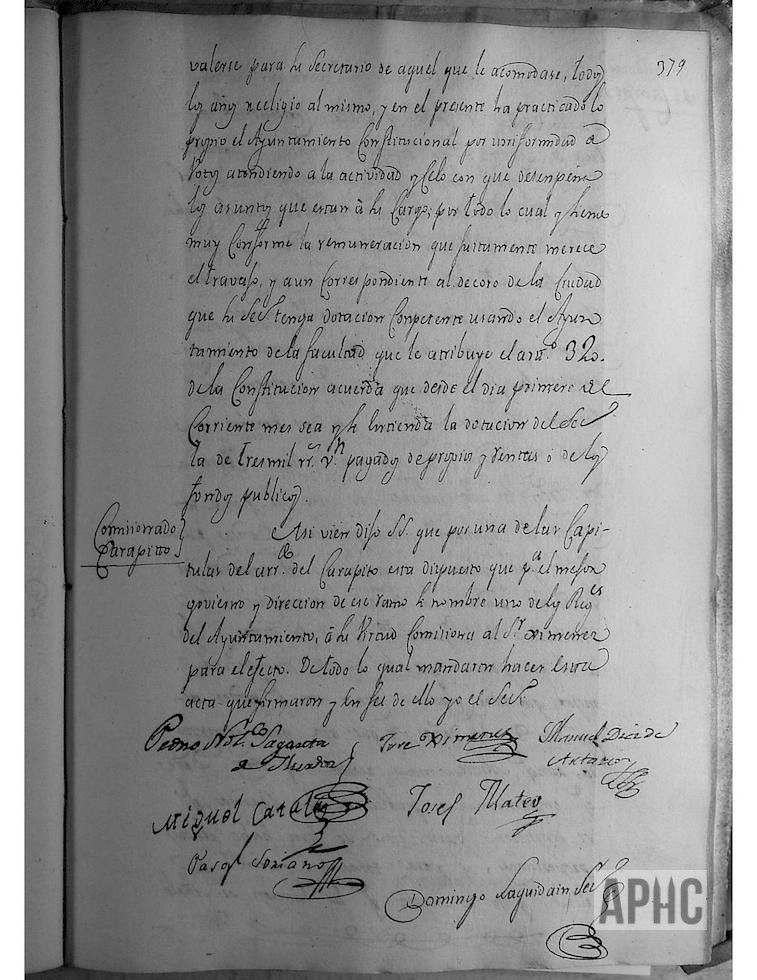 379
valerse para su Secretario de aquel que le acomodase, todos
los años reeligio al mismo, y en el presente ha practicado lo
propio el Ayuntamiento Constitucional por uniformidad de
Votos atendiendo a la actividad y Celo con que desenpeña
los asuntos que estan à su Cargo; por todo lo cual y siendo
muy Conforme la remuneracion que justamente merece
el travajo, y aun Correspondiente al decoro de la Ciudad
que su Secº tenga dotacion Conpetente usando el Ayun
tamiento de la facultad que le atribuye el artº 320.
de la Constitucion acuerda que desde el dia primero del
Corriente mes sea y se entienda la dotacion del Secº
la de tres mil rrs vn pagados de propios y rentas ò de los
fondos publicos.
Comisionado
Carapito
Asi vien dijo SS. que por una de las Capi-
tulas del arrdo del Carapito esta dispuesto que pa el mejor
govierno y direccion de ese ramo se nombre uno de los Reges
del Ayuntamiento, à su Virtud Comisiona al Sr Ximenez
para el efecto. De todo lo qual mandaron hacer esta
acta que firmaron y en fee de ello yo el Secº
Pedro Sagaseta
Jose Ximenez
Manuel Diez de
Artazo
Miguel Catalan
Josef Mateo
Pasql Soriano
Domingo Laguidain, Secº
APHC